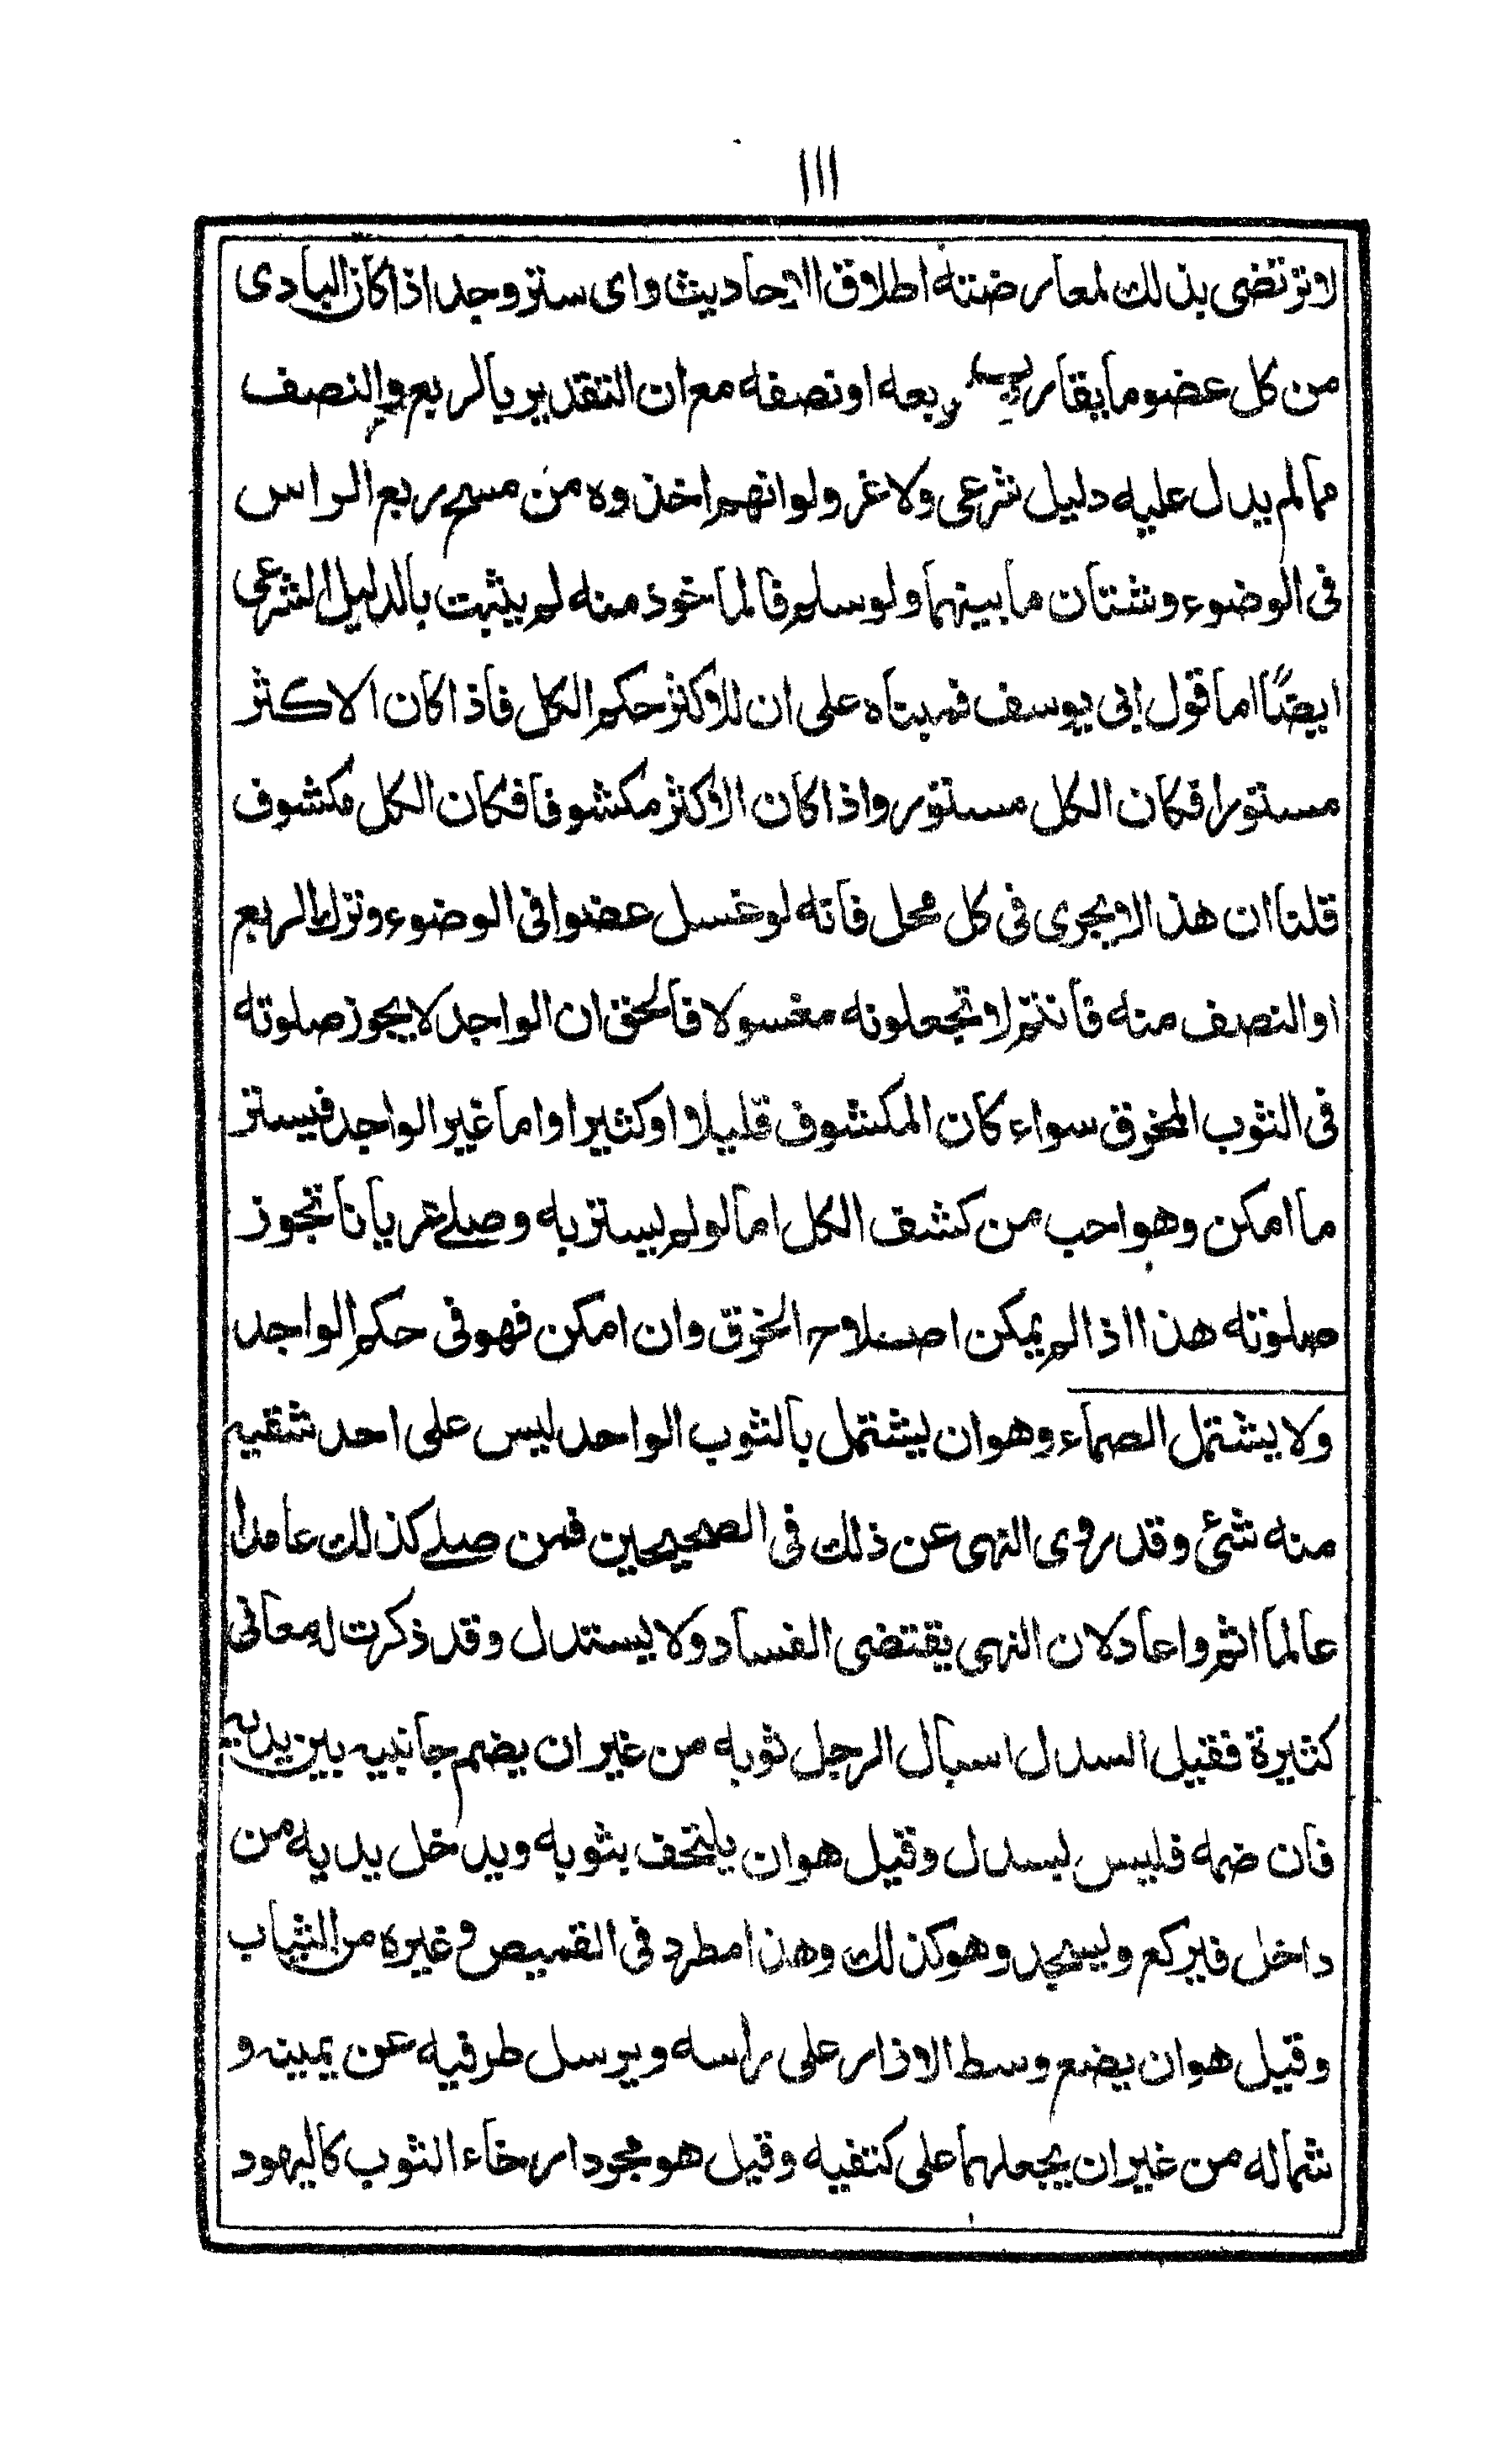 ١١١
لا ترتضى بذلك لمعارضته اطلاق الاحاديث واى ستر وجد اذا كان البادى
من كل عضو ما يقارب ربعه او نصفه مع ان التقدير بالربع والنصف
مما لم يدل عليه دليل شرعى ولا غر ولو انهم اخذوه من مسح ربع الراس
فى الوضوء وشتان ما بينهما ولو سلم فالماخوذ منه لم يثبت بالدليل الشرعى
ايضًا اما قول ابى يوسف فمبناه على ان للاكثر حكم الكل فاذا كان الاكثر
مستورا فكان الكل مستور واذا كان الاكثر مكشوفا فكان الكل مكشوف
قلنا ان هذا لا يجرى فى كل محل فانه لو غسل عضوا فى الوضوء وترك الربع
او النصف منه فانتم لا تجعلونه مغسولا فالحق ان الواجد لا يجوز صلوته
فى الثوب المخرق سواء كان المكشوف قليلا او كثيرا واما غير الواجد فيستر
ما امكن وهو احب من كشف الكل اما لو لم يستر به وصلے عريانا تجوز
صلوته هذا اذا لم يمكن اصلاح الخرق وان امكن فهو فى حكم الواجد
ولا يشتمل الصماء وهو ان يشتمل بالثوب الواحد ليس على احد شقيه
منه شئ وقد روى النهى عن ذلك فى الصحيحين فمن صلے كذلك عامدا
عالما اثم واعاد لان النهى يقتضى الفساد ولا يستدل وقد ذكرت له معانى
كثيرة فقيل السدل اسبال الرجل ثوبه من غير ان يضم جانبيه بين يديه
فان ضمه فليس بسدل وقيل هو ان يلتحف بثوبه ويدخل يديه من
داخل فيركع ويسجد وهو كذلك وهذا مطرد فى القميص وغيره من الثياب
وقيل هو ان يضع وسط الازار على راسه ويرسل طرفيه عن يمينه و
شماله من غير ان يجعلهما على كتفيه وقيل هو مجرد ارخاء الثوب كاليهود